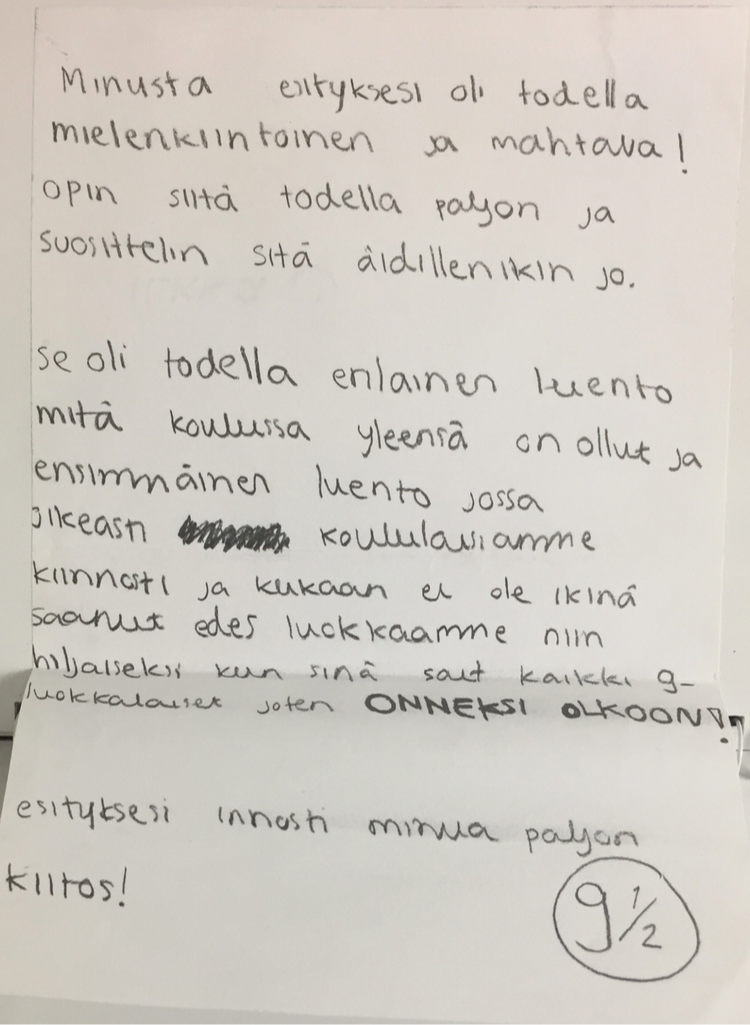 Minusta esityksesi oli todella
mielenkiintoinen ja mahtava!
opin siitä todella paljon ja
suosittelin sitä äidillenikin jo.
se oli todella erilainen luento
mitä koulussa yleensä on ollut ja
ensimmäinen luento jossa
oikeasti koululaisiamme
kiinnosti ja kukaan ei ole ikinä
saanut edes luokkaamme niin
hiljaiseksi kun sinä sait kaikki 9-
luokkalaiset joten ONNEKSI OLKOON!
esityksesi innosti minua paljon
kiitos!
9 1/2